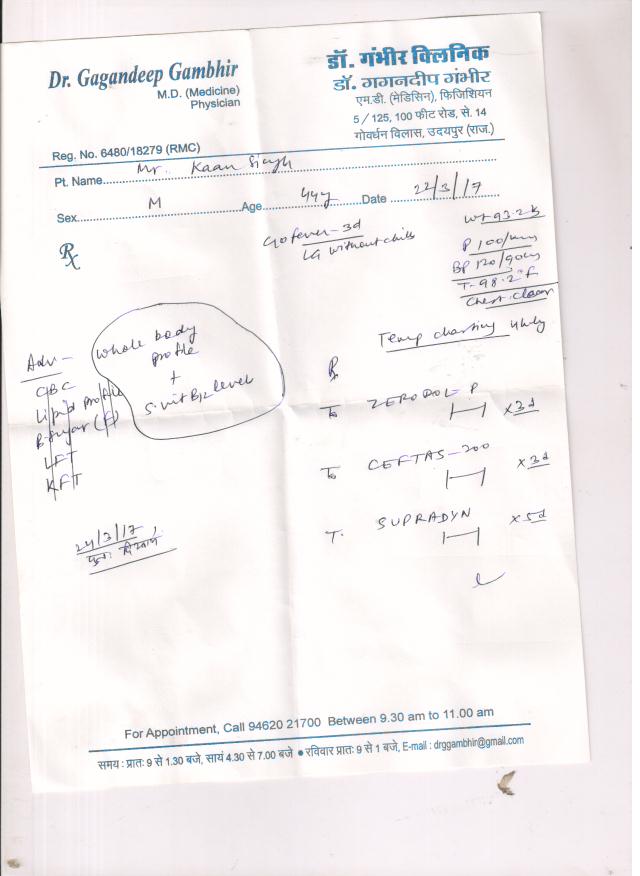 Dr. Gagandeep Gambhir
M.D. (Medicine)
Physician
डॉ. गंभीर क्लिनिक
डॉ. गगनदीप गंभीर
एम.डी. (मेडिसिन), फिजिशियन
5/125, 100 फीट रोड, से. 14
गोवर्धन विलास, उदयपुर (राज.)
Reg. No. 6480/18279 (RMC)
Pt. Name Mr. Kaan Singh
Sex M Age 44y Date 22/3/17
Rx
c/o fever - 3d
LG without chills
Wt 93.2 k
P 100/min
BP 120/90
T - 98.2°F
Chest. Clear
Temp charting 4hrly
Adv -
whole body
profile
+
S. vit B12 level
CBC
Lipid profile
B. Sugar (F)
LFT
KFT
24/3/17
पुनः दिखाएं
R
T. ZERODOL-P x 3d
T. CEFTAS-200 x 3d
T. SUPRADYN x 5d
For Appointment, Call 94620 21700 Between 9.30 am to 11.00 am
समय : प्रातः 9 से 1.30 बजे, सायं 4.30 से 7.00 बजे ● रविवार प्रातः 9 से 1 बजे, E-mail : drggambhir@gmail.com